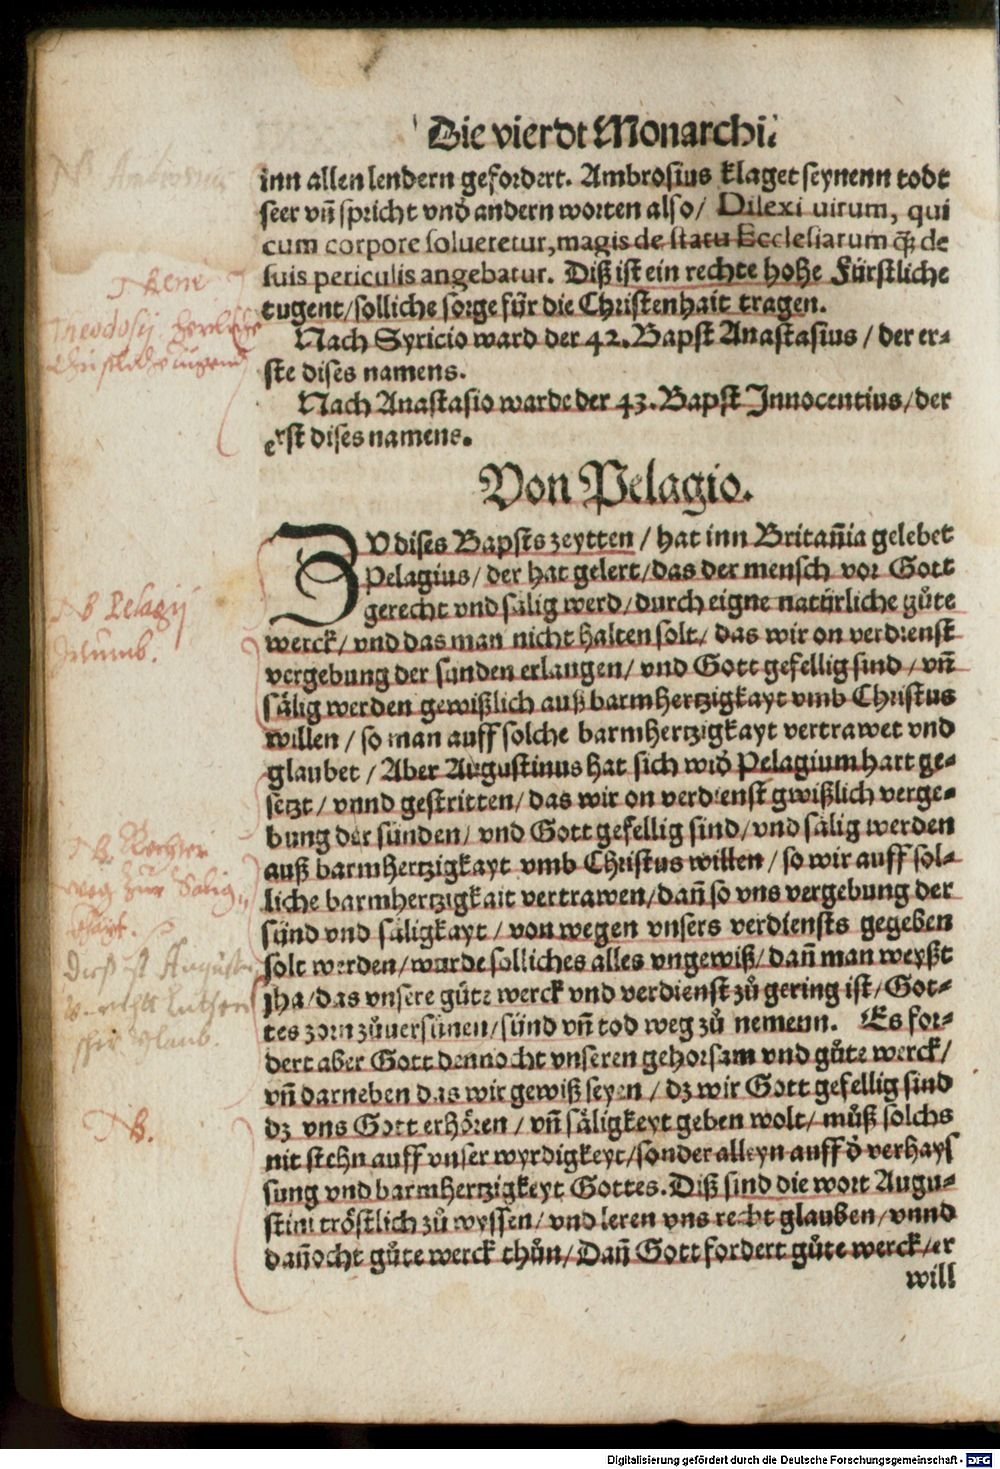 Die vierdt Monarchi.
inn allen lendern gefordert. Ambrosius klaget seynenn todt
seer vñ spricht vnd̄ andern worten also/ Dilexi uirum, qui
cum corpore solueretur, magis de statu Ecclesiarum q̃ de
suis periculis angebatur. Diß ist ein rechte hohe Fürstliche
tugent/solliche sorge für die Christenhait tragen.
Nach Syricio ward der 42. Bapst Anastasius / der er-
ste dises namens.
Nach Anastasio warde der 43. Bapst Innocentius/der
erst dises namens.
Von Pelagio.
ZV dises Bapsts zeytten / hat inn Britañia gelebet
Pelagius/ der hat gelert/das der mensch vor Gott
gerecht vnd sälig werd/durch eigne natürliche gůte
werck/ vnd das man nicht halten solt/ das wir on verdienst
vergebung der sunden erlangen/ vnd Gott gefellig sind / vñ
sälig werden gewißlich auß barmhertzigkayt vmb Christus
willen / so man auff solche barmhertzigkayt vertrawet vnd
glaubet / Aber Augustinus hat sich wid̄ Pelagium hart ge-
setzt / vnnd gestritten/ das wir on verdienst gwißlich verge-
bung der sünden/ vnd Gott gefellig sind/vnd sälig werden
auß barmhertzigkayt vmb Christus willen / so wir auff sol-
liche barmhertzigkait vertrawen/dañ so vns vergebung der
sünd vnd säligkayt / von wegen vnsers verdiensts gegeben
solt werden/wurde solliches alles vngewiß/ dañ man weyßt
jha/das vnsere gůte werck vnd verdienst zů gering ist/ Got-
tes zorn zůuersünen/sünd vñ tod weg zů nemenn. Es for-
dert aber Gott dennocht vnseren gehorsam vnd gůte werck/
vñ darneben das wir gewiß seyen / dz wir Gott gefellig sind
dz vns Gott erhören / vñ säligkeyt geben wolt/ můß solchs
nit stehn auff vnser wyrdigkeyt/sonder alleyn auff d̄ verhays
sung vnd barmhertzigkeyt Gottes. Diß sind die wort Augu-
stini tröstlich zů wyssen/ vnd leren vns recht glauben/vnnd
dañocht gůte werck thůn/ Dañ Gott fordert gůte werck/er
will
NB Ambrosius
Theodosij herliche
NB Pelagij
NB Rechter
weg zur Selig
NB.
Digitalisierung gefördert durch die Deutsche Forschungsgemeinschaft - DFG